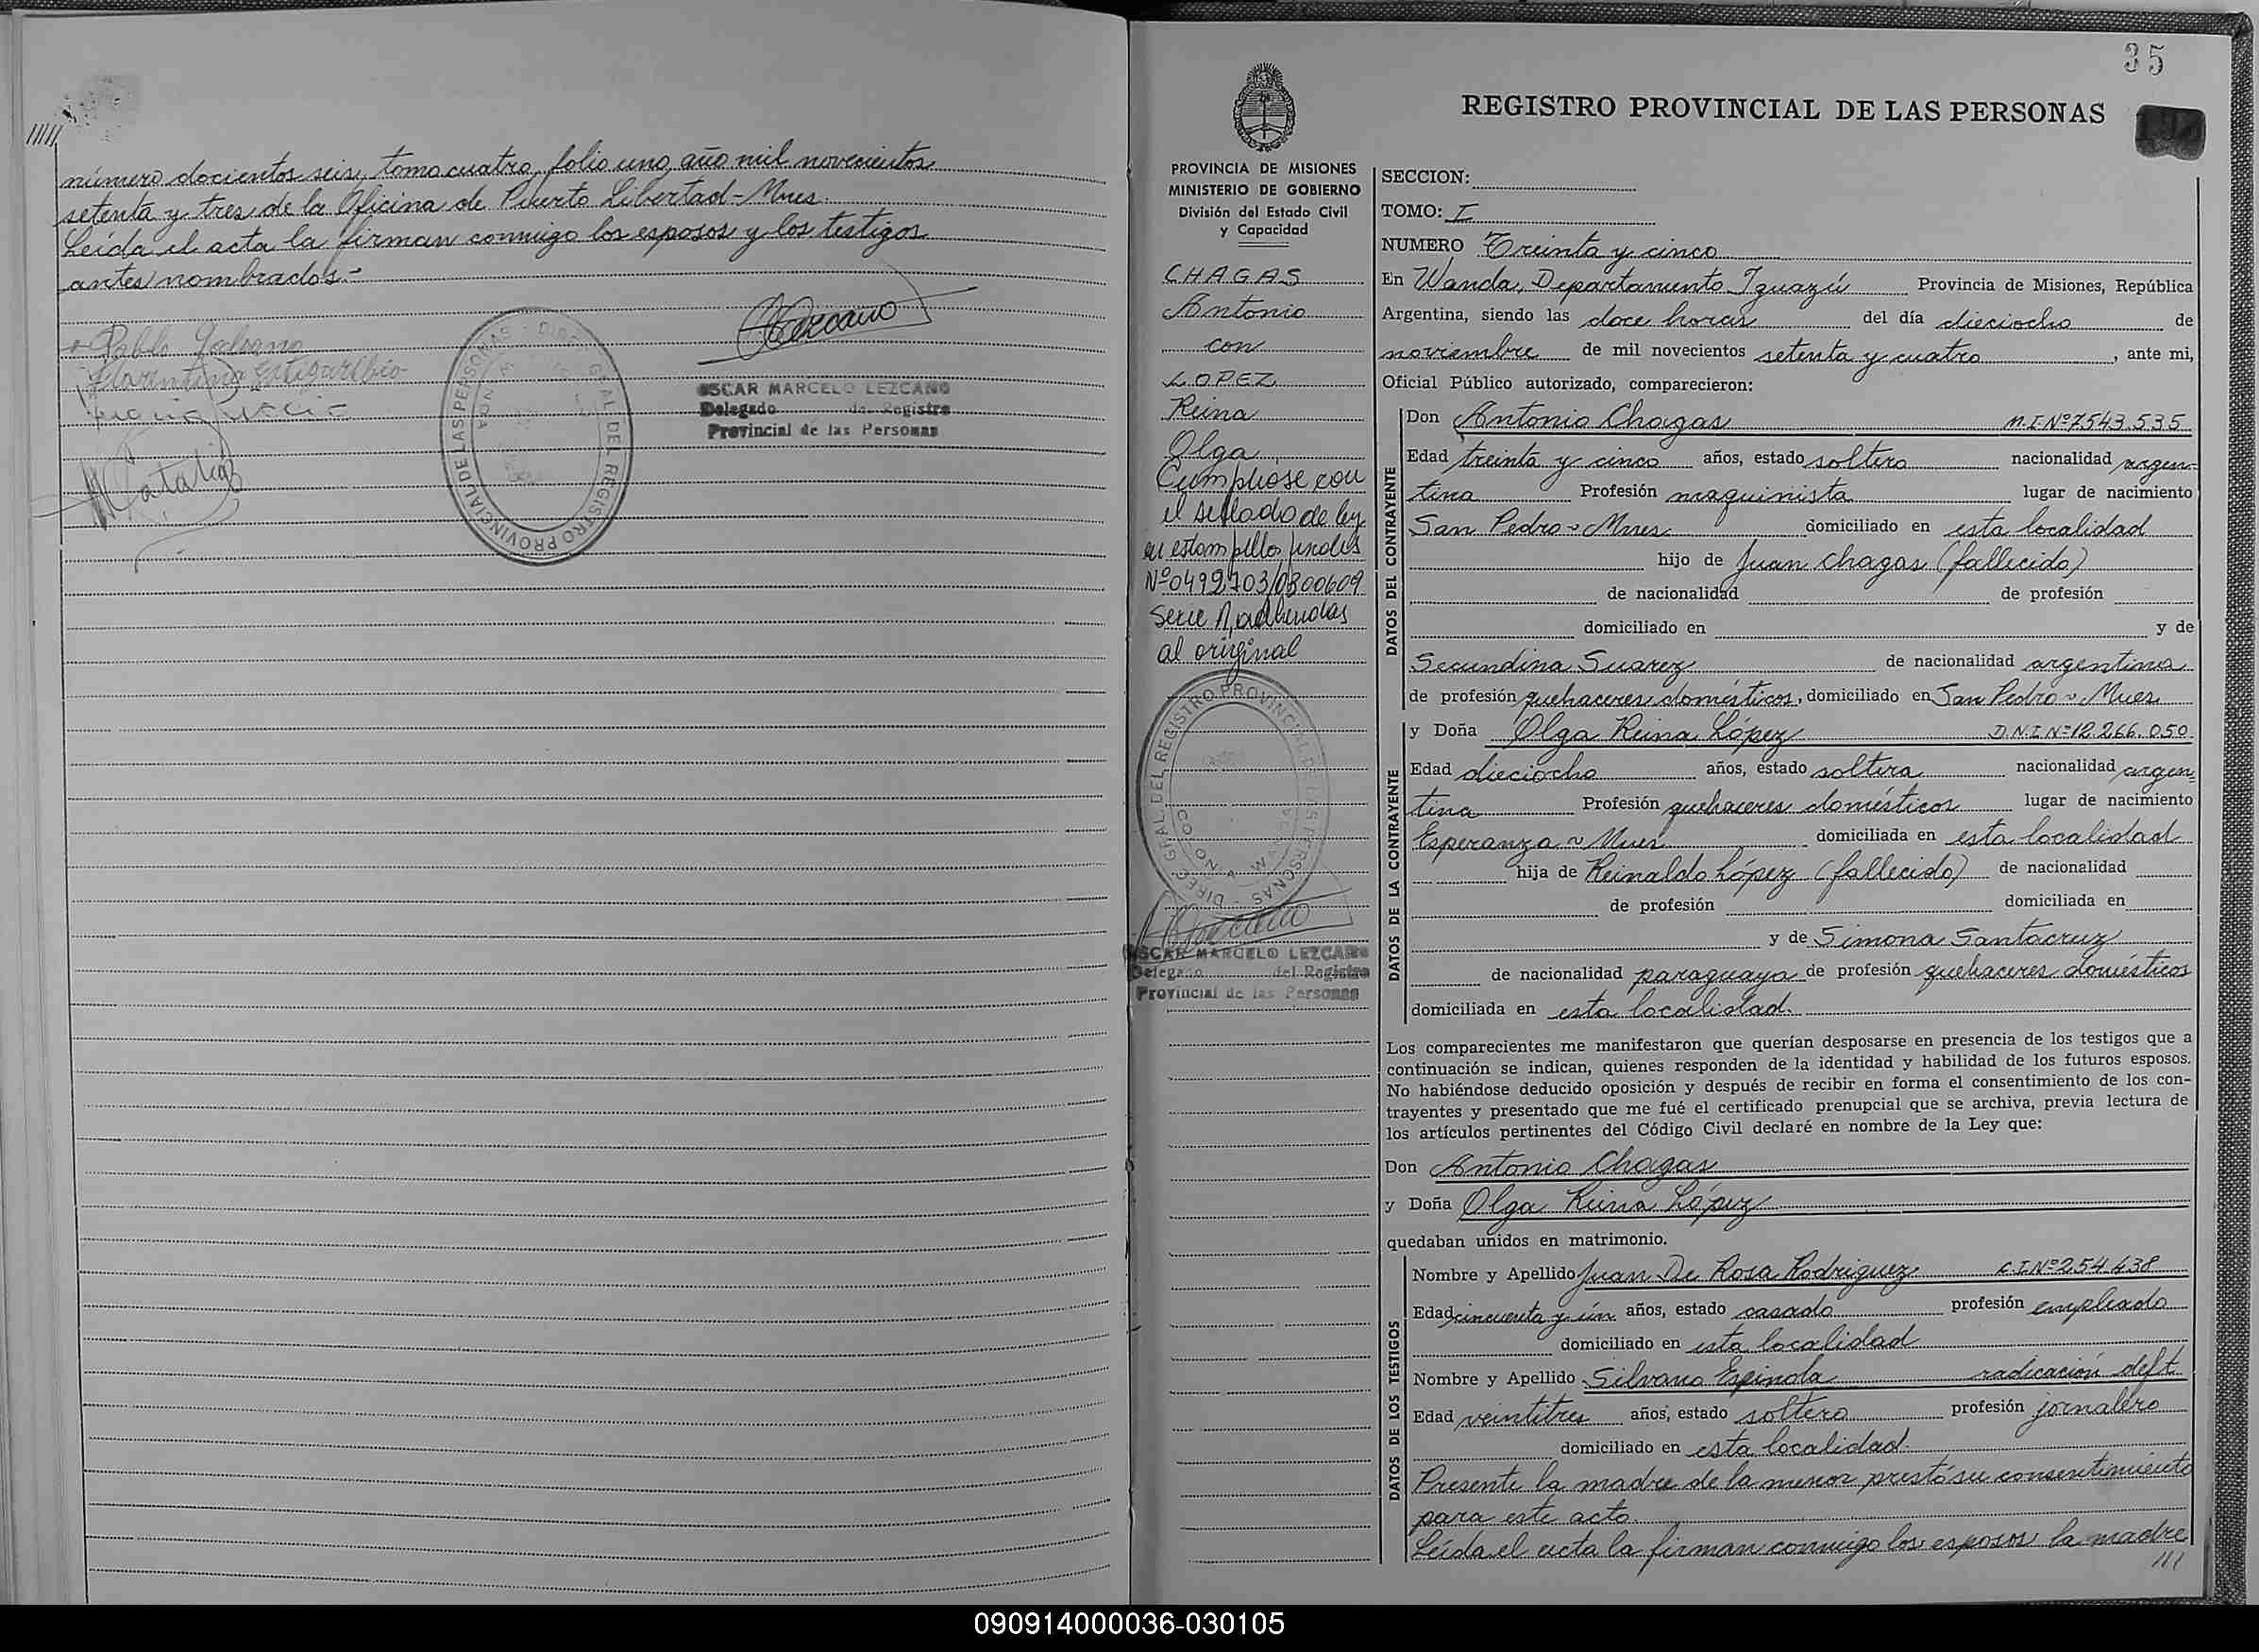 /////
número docientos seis, tomo cuatro, folio uno, año mil novecientos
setenta y tres de la Oficina de Puerto Libertad - Mnes.
Leída el acta la firman conmigo los esposos y los testigos
antes nombrados.-
Pablo
OSCAR MARCELO LEZCANO
Delegado del Registro
Provincial de las Personas
DIREC. GRAL DEL REGISTRO PROVINCIAL DE LAS PERSONAS
35
REGISTRO PROVINCIAL DE LAS PERSONAS
PROVINCIA DE MISIONES
MINISTERIO DE GOBIERNO
División del Estado Civil
y Capacidad
CHAGAS
Antonio
con
LOPEZ
Reina
Olga
Cumpliose con
el sellado de ley
en estampillas
Nº 0492703/0800609
Serie A, adheridas
al original
DIREC. GRAL. DEL REGISTRO PROVINCIAL DE LAS PERSONAS
OSCAR MARCELO LEZCANO
Delegado del Registro
Provincial de las Personas
SECCION:
TOMO: I
NUMERO Treinta y cinco
En Wanda, Departamento Iguazú Provincia de Misiones, República
Argentina, siendo las doce horas del día dieciocho de
noviembre de mil novecientos setenta y cuatro, ante mi,
Oficial Público autorizado, comparecieron:
DATOS DEL CONTRAYENTE
Don Antonio Chagas M.I.Nº 7.543.535
Edad treinta y cinco años, estado soltero nacionalidad argen-
tina Profesión maquinista lugar de nacimiento
San Pedro - Mnes domiciliado en esta localidad
hijo de Juan Chagas (fallecido)
de nacionalidad de profesión
domiciliado en y de
Secundina Suarez de nacionalidad argentina
de profesión quehaceres domésticos, domiciliado en San Pedro - Mnes
DATOS DE LA CONTRAYENTE
y Doña Olga Reina López D.N.I.Nº 12.266.050
Edad dieciocho años, estado soltera nacionalidad argen=
tina Profesión quehaceres domésticos lugar de nacimiento
Esperanza - Mnes domiciliada en esta localidad
hija de Reinaldo López (fallecido) de nacionalidad
de profesión domiciliada en
y de Simona Santacruz
de nacionalidad paraguaya de profesión quehaceres domésticos
domiciliada en esta localidad.
Los comparecientes me manifestaron que querían desposarse en presencia de los testigos que a
continuación se indican, quienes responden de la identidad y habilidad de los futuros esposos.
No habiéndose deducido oposición y después de recibir en forma el consentimiento de los con-
trayentes y presentado que me fué el certificado prenupcial que se archiva, previa lectura de
los artículos pertinentes del Código Civil declaré en nombre de la Ley que:
Don Antonio Chagas
y Doña Olga Reina López
quedaban unidos en matrimonio.
DATOS DE LOS TESTIGOS
Nombre y Apellido Juan De Rosa Rodriguez C.I.Nº 254.438
Edad cincuenta y ún años, estado casado profesión empleado
domiciliado en esta localidad
Nombre y Apellido Silvano Espinola radicación deft.
Edad veintitres años, estado soltero profesión jornalero
domiciliado en esta localidad.
Presente la madre de la menor prestó su consentimiento
para este acto.
Leída el acta la firman conmigo los esposos la madre
///
090914000036-030105